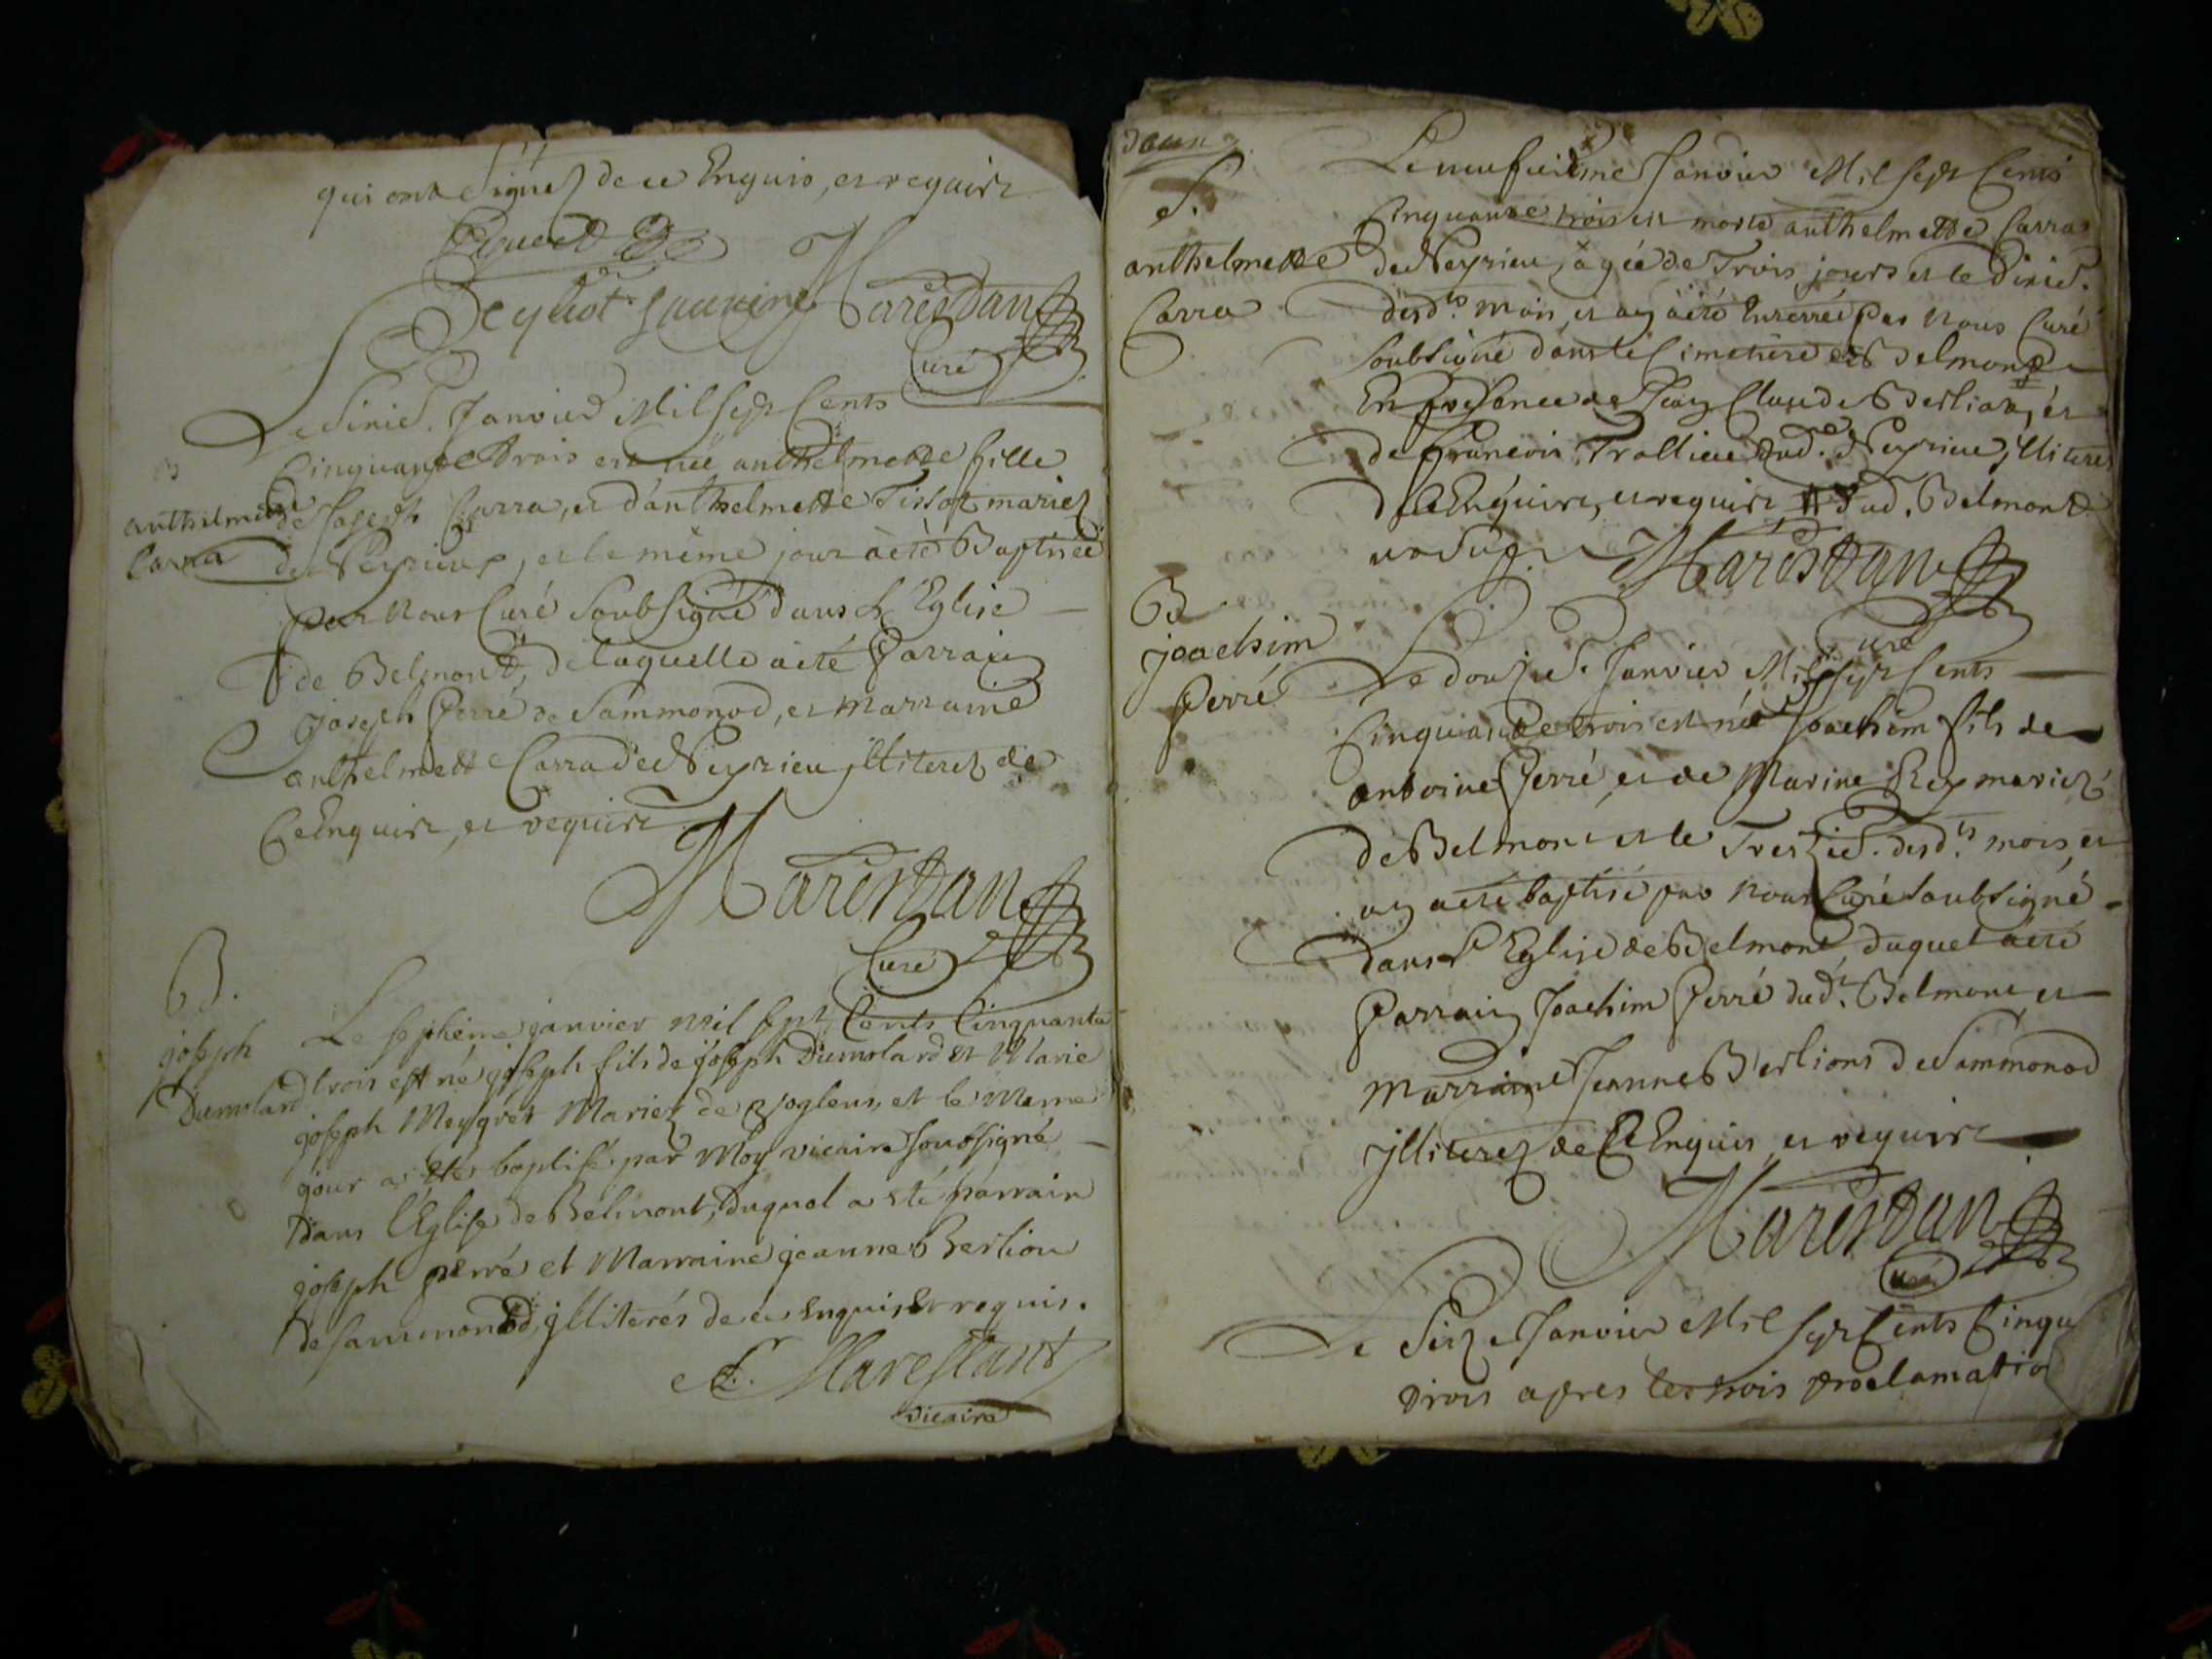 qui ont Signez de ce Enquis, et requis
Marestan
Curé
Le Sixie. Janvier Mil Sept Cents
B
Cinquante trois est née anthelmette fille
anthelmette
de Joseph Carra, et d'anthelmette Tissot mariez
Carra
de Neyrieux, et le même jour a été Baptisée
par Nous Curé Soubsigné dans L'Eglise
de Belmont, de laquelle a été Parrain
Joseph Perré de Sammonod, et Marraine
anthelmette Carra de Neyrieu jlliterez de
Ce Enquis, et requis
Marestan
Curé
B.
Le septième janvier mil sept Cents Cinquante
joseph
Dumolard
trois est né joseph fils de joseph Dumolard et Marie
joseph Meygret Mariez de Voglens, et le Meme
jour a été baptisé par Moy vicaire soubsigné
Dans l'Eglise de Belmont, Duquel a été parrain
joseph perré et Marraine jeanne Berlion
de sammonod, jlliterés de ce Enquis et requis.
Marestant
vicaire
deux
S.
anthelmette
Carra
Le neufvieme Janvier Mil Sept Cents
Cinquante trois est morte anthelmette Carra
de Neyrieu, agée de Trois jours et le Dixie.
desd.ts mois, et an a été Enterrée Par Nous Curé
Soubsigné dans le Cimetiere de Belmont
En presence de Jean Claude Berlion, et
de francois Trollieu dud.t Neyrieu, jlliterez
de Ce Enquis, et requis dud. Belmont
Marestan
Curé
B
joachim
Perré
Le douzie. Janvier Mil Sept Cents
Cinquante trois est né Joachim fils de
antoine Perré, et de Marine Rey mariez
de Belmont et le Trezie. desd.ts mois, et
an a été baptisé par Nous Curé Soubsigné
dans L'Eglise de Belmont, duquel a été
Parrain Joachim Perré dud.t Belmont et
Marraine Jeanne Berlions de Sammonod
jlliterez de Ce Enquis, et requis
Marestan
Curé
Le Seize Janvier Mil Sept Cents Cinqu
trois apres les trois proclamatio